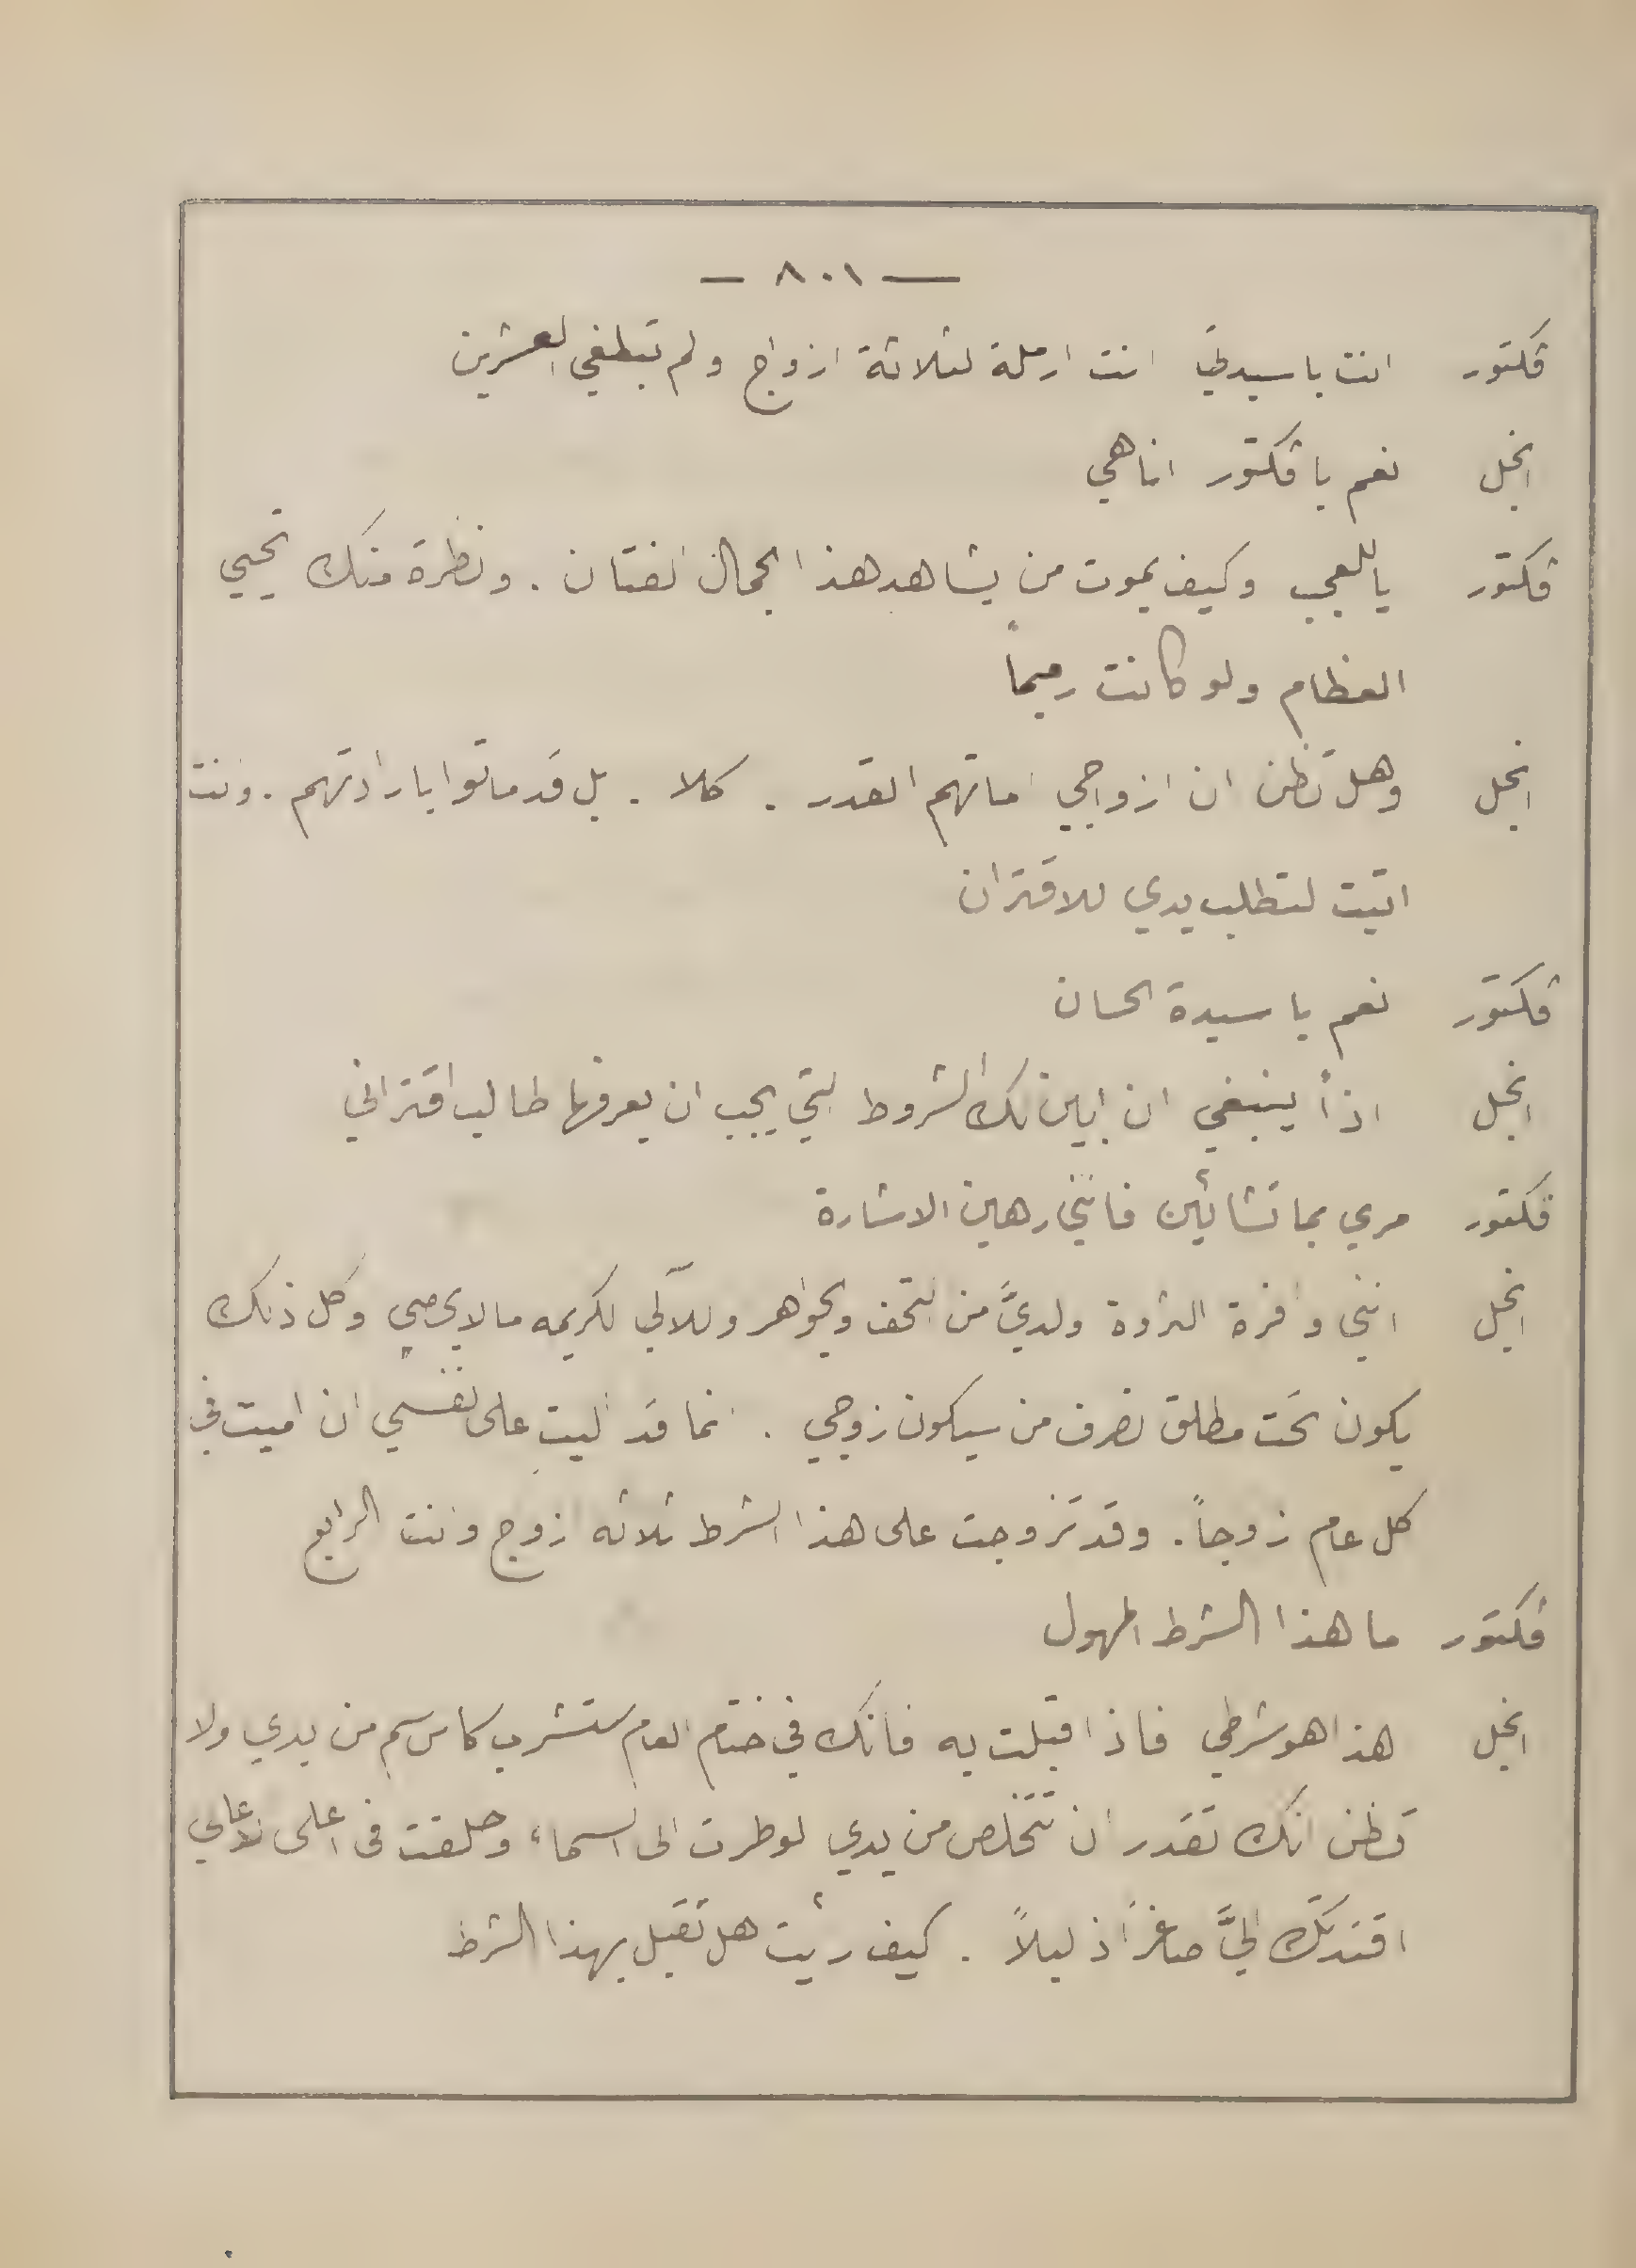 — ٨٠١ —
ڤكتور انت يا سيدتي انت ارملة لثلاثة ازواج ولم تبلغي العشرين
انجل نعم يا ڤكتور انا هي
ڤكتور يا للعجب وكيف يموت من يشاهد هذا الجمال الفتان . ونظرة منك تحيي
العظام ولو كانت رميماً
انجل وهل تظن ان ازواجي اماتهم القدر . كلا . بل قد ماتوا بارادتهم . وانت
اتيت لتطلب يدي للاقتران
ڤكتور نعم يا سيدة الحسان
انجل اذاً ينبغي ان ابين لك الشروط التي يجب ان يعرفها طالب اقتراني
ڤكتور مري بما تشائين فانني رهين الاشارة
انجل انني وافرة الثروة ولديَّ من التحف والجواهر واللآلي الكريمه ما لا يحصى وكل ذلك
يكون تحت مطلق تصرف من سيكون زوجي . انما قد اليت على نفسي ان اميت في
كل عام زوجاً . وقد تزوجت على هذا الشرط ثلاثه ازواج وانت الرابع
ڤكتور ما هذا الشرط المهول
انجل هذا هو شرطي فاذا قبلت به فانك في ختام العام ستشرب كاس سم من يدي ولا
تظن انك تقدر ان تتخلص من يدي لو طرت الى السماء وحلقت في اعلى الاعالي
اقتدتك اليَّ صاغراً ذليلاً . كيف رأيت هل تقبل بهذا الشرط